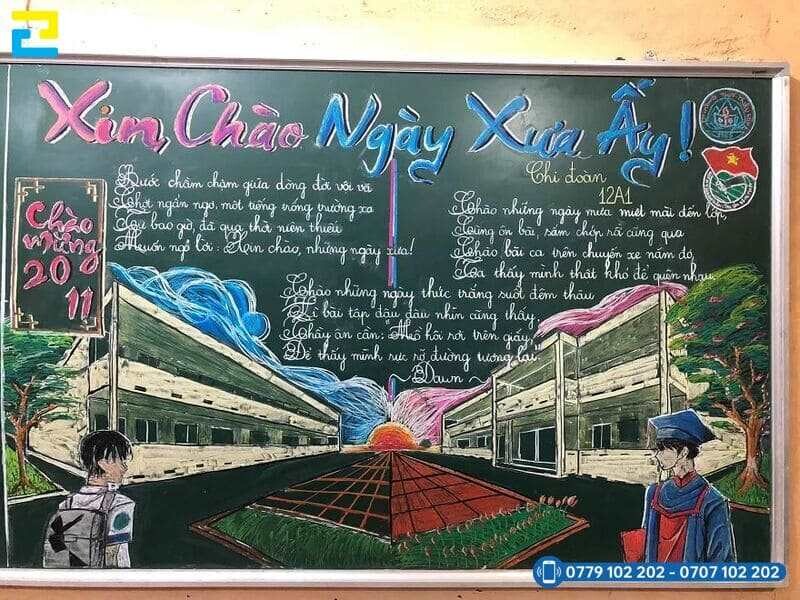 Xin Chào Ngày Xưa Ấy!
Chi đoàn
12A1
Chào
mừng
20
11
Bước chầm chậm giữa dòng đời vội vã
Chợt ngân nga, một tiếng trống trường xa
Từ bao giờ, đã qua, thời niên thiếu
Muốn ngỏ lời: Xin chào, những ngày xưa!
Chào những ngày mưa miệt mài đến lớp,
Cùng ôn bài, sấm chớp rồi cũng qua
Chào bài ca trên chuyến xe năm đó,
Ta thấy mình thật khó để quên nhau
Chào những ngày thức trắng suốt đêm thâu
Vì bài tập đâu đâu nhìn cũng thấy,
Cháy ân cần: Mồ hôi rơi trên giấy,
Để thấy mình rực rỡ đường tương lai.
~ Dawn ~
0779 102 202 - 0707 102 202